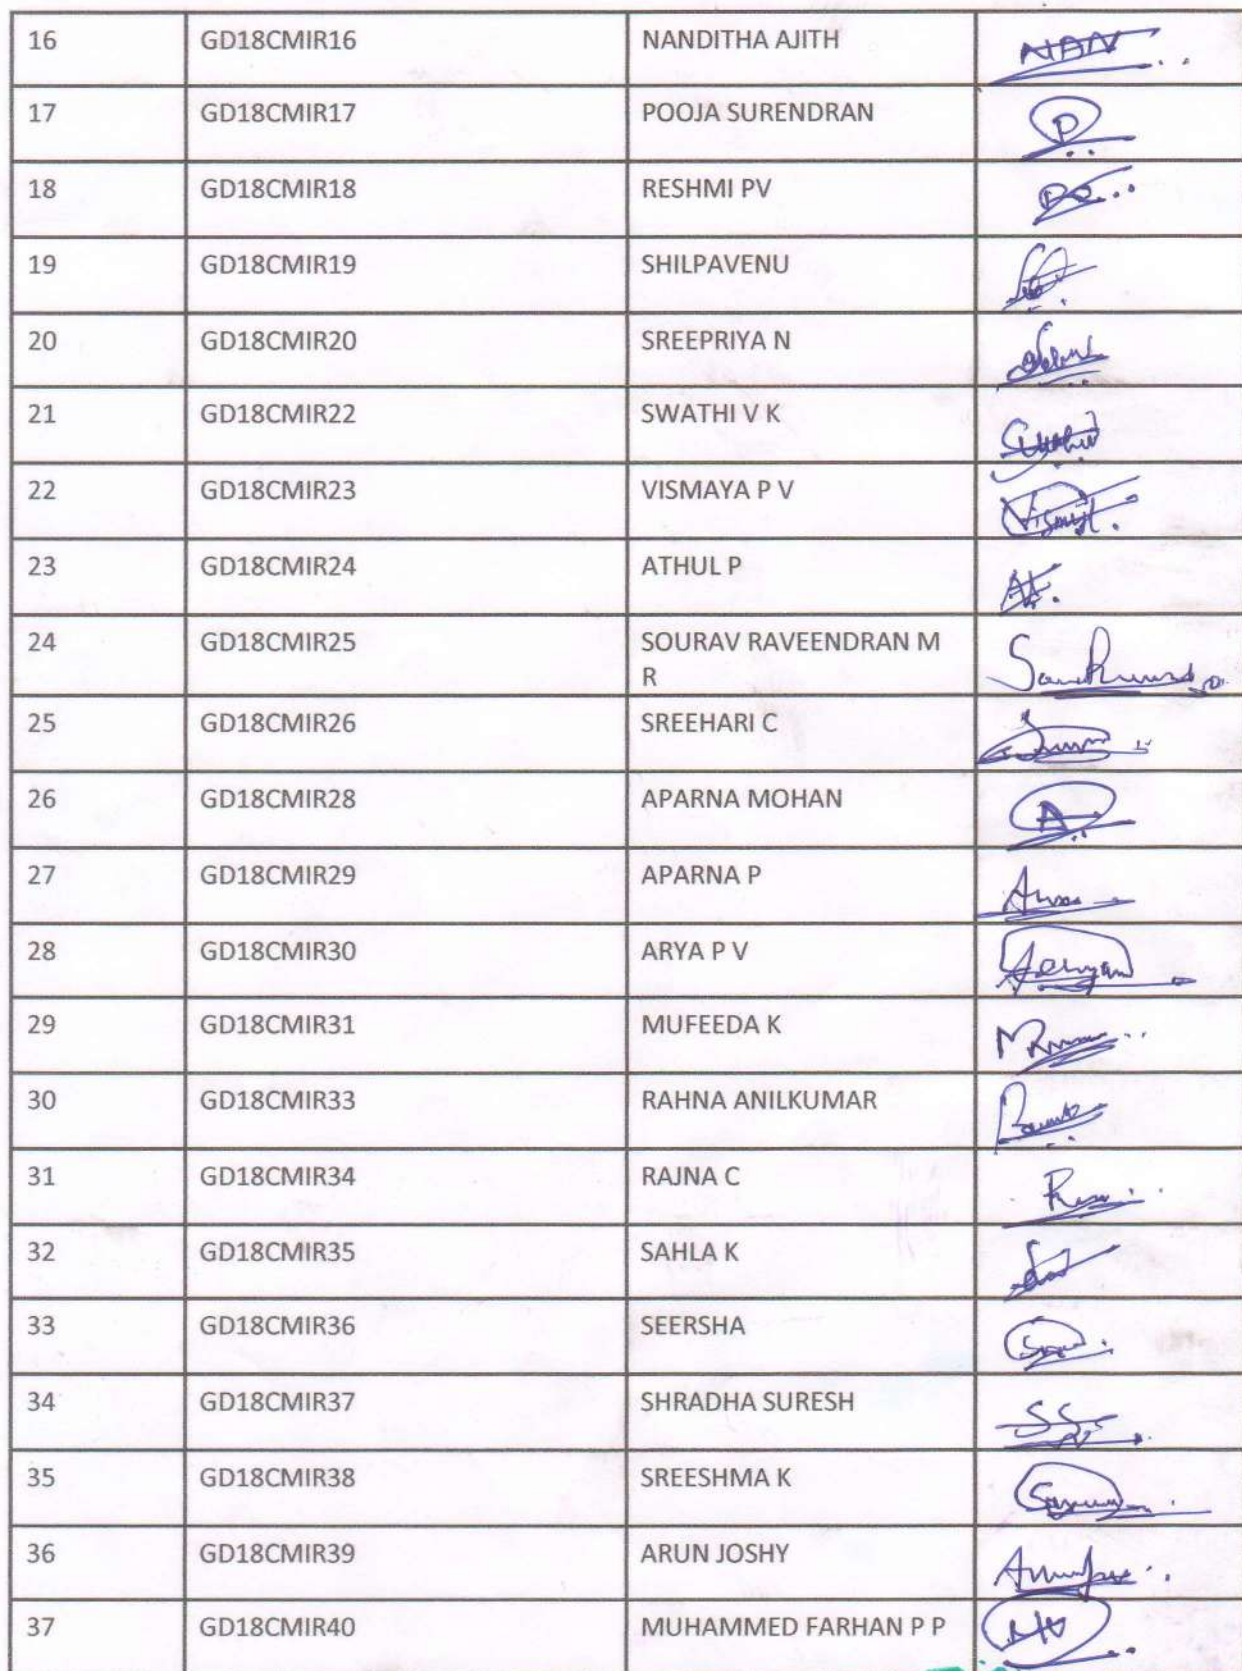 16 GD18CMIR16 NANDITHA AJITH NAN
17 GD18CMIR17 POOJA SURENDRAN P
18 GD18CMIR18 RESHMI PV
19 GD18CMIR19 SHILPAVENU
20 GD18CMIR20 SREEPRIYA N
21 GD18CMIR22 SWATHI V K
22 GD18CMIR23 VISMAYA P V
23 GD18CMIR24 ATHUL P
24 GD18CMIR25 SOURAV RAVEENDRAN M
R
25 GD18CMIR26 SREEHARI C
26 GD18CMIR28 APARNA MOHAN A
27 GD18CMIR29 APARNA P
28 GD18CMIR30 ARYA P V
29 GD18CMIR31 MUFEEDA K
30 GD18CMIR33 RAHNA ANILKUMAR
31 GD18CMIR34 RAJNA C
32 GD18CMIR35 SAHLA K
33 GD18CMIR36 SEERSHA
34 GD18CMIR37 SHRADHA SURESH
35 GD18CMIR38 SREESHMA K
36 GD18CMIR39 ARUN JOSHY
37 GD18CMIR40 MUHAMMED FARHAN P P